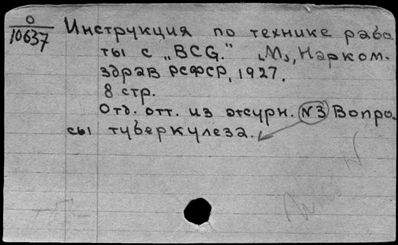 0
10637
Инструкция по технике рабо-
ты с „BCG." М., Нарком-
здрав РСФСР, 1927.
8 стр.
Отд. отт. из журн. №3 Вопро-
сы туберкулеза.